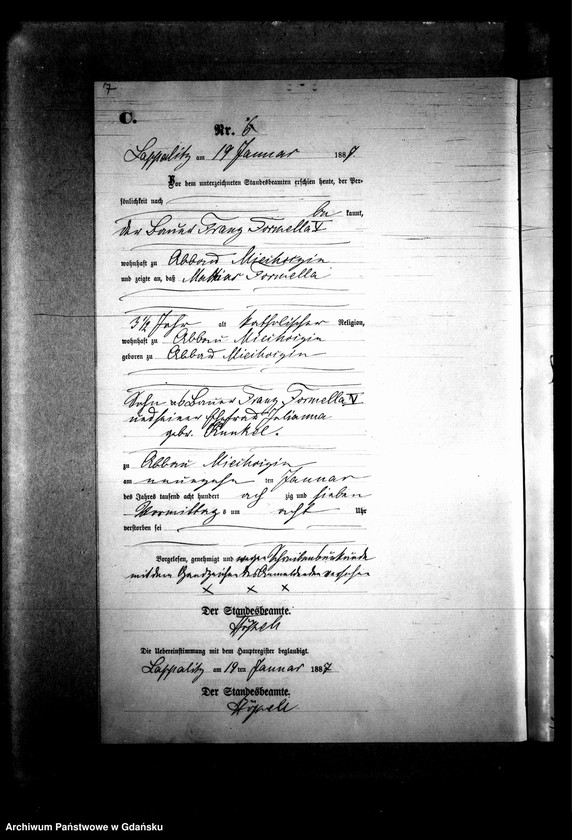 7
C.
Nr. 6
Lappalitz am 19 Januar 1887.
Vor dem unterzeichneten Standesbeamten erschien heute, der Per-
sönlichkeit nach
be kannt,
der Bauer Franz Formella V
wohnhaft zu Abbau Miechorzin
und zeigte an, daß Mathias Formella
3 1/2 Jahr alt katholischer Religion,
wohnhaft zu Abbau
geboren zu Abbau
Sohn des Bauer Franz Formella V
und seiner Ehefrau Julianna
gebr. Kunkel.
zu Abbau
am neunzehn ten Januar
des Jahres tausend acht hundert ach zig und sieben
Vormittag s um acht Uhr
verstorben sei
Vorgelesen, genehmigt und wegen Schreibensunkunde
mit dem Handzeichen des Anmeldenden versehen
x x x
Der Standesbeamte.
Die Uebereinstimmung mit dem Hauptregister beglaubigt.
Lappalitz am 19 ten Januar 1887
Der Standesbeamte.
Archiwum Państwowe w Gdańsku